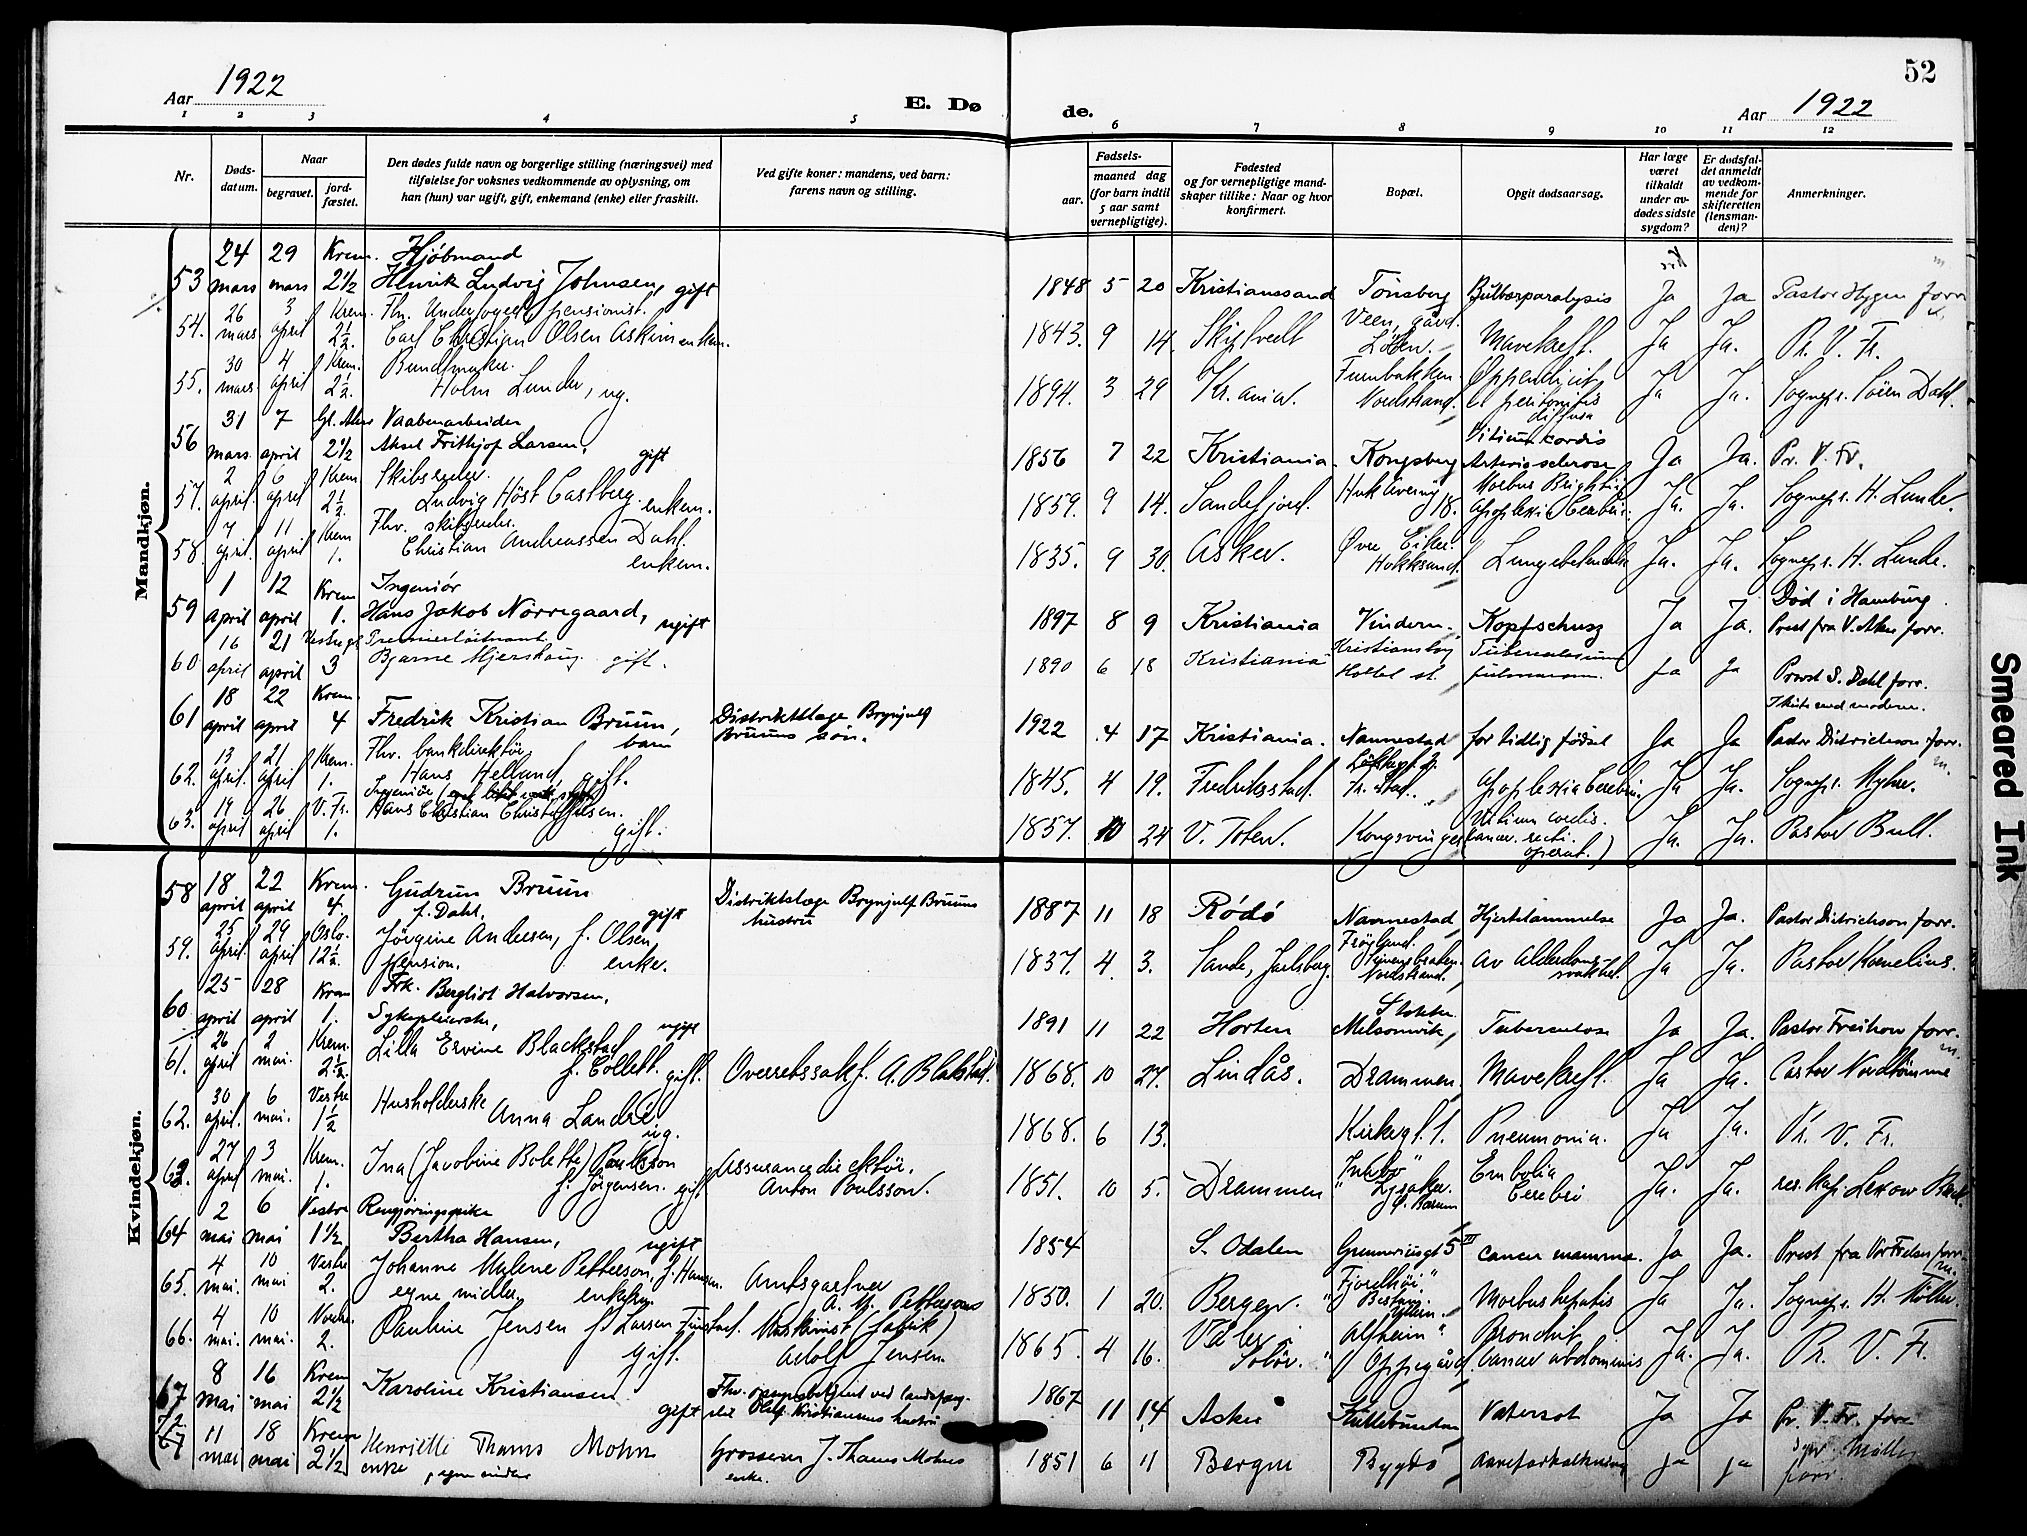 52
Aar 1922
E. Døde.
Aar 1922
1 2 3 4 5 6 7 8 9 10 11 12
Nr.
Døds-
datum.
Naar
begravet.
jord-
fæstet.
Den dødes fulde navn og borgerlige stilling (næringsvei) med
tilføielse for voksnes vedkommende av oplysning, om
han (hun) var ugift, gift, enkemand (enke) eller fraskilt.
Ved gifte koner: mandens, ved barn:
farens navn og stilling.
Fødsels-
aar.
maaned dag
(for barn indtil
5 aar samt
vernepligtige).
Fødested
og for vernepligtige mand-
skaper tillike: Naar og hvor
konfirmert.
Bopæl.
Opgit dødsaarsag.
Har læge
været
tilkaldt
under av-
dødes sidste
sygdom?
Er dødsfal-
det anmeldt
av vedkom-
mende for
skifteretten
(lensman-
den)?
Anmerkninger.
Mandkjøn.
53 24 mars 29 mars Krem. 2 1/2 Kjøbmand
Henrik Ludvig Johnsen, gift
1848 5 20 Kristianssand Tønsberg Bulbærparalysis Ja Ja Pastor Hygen forr.
54. 26 mars 3 april Krem. 2 1/2. pensionist.
Carl Christian Olsen Askim enkem.
1843. 9 14. Skiptvedt Veen, gård. Løten. Mavekreft. Ja Ja. Pr. V. Fr.
55. 30 mars 4 april Krem. 2 1/2. Bundtmaker.
Holm Lunder, ug.
1894. 3 29 Kr.ania. Nordstrand. peritonitis diffusa Ja Ja. Sognepr. Søren Dahl.
56 31 mars 7 april Gl. Aker 2 1/2 Vaabenarbeider
Aksel Frithjof Larsen, gift
1856 7 22 Kristiania. Kongsberg Vitium cordis Arteriosclerose Ja Ja. Pr. V. Fr.
57. 2 april. 6 april Krem 2 1/2. Skibsreder.
Ludvig Höst Castberg. enkem.
1859. 9 14. Sandefjord. Huk Aveny 18. Morbus Brightii Apoplexia Cerebri. Ja. Ja. Sognepr. H. Lunde.
58. 7 april. 11 april Krem 1. Fhv. skibsreder.
Christian Andreassen Dahl. enkem.
1835. 9 30. Asker. Øvre Eiker. Hokksund. Lungebetændelse Ja. Ja. Sognepr. H. Lunde.
59 1 april 12 april Krem 1. Ingeniør
Hans Jakob Nørregaard, ugift
1897 8 9 Kristiania Vindern. Kopfschusz Ja Ja. Død i Hamburg.
Prest fra V. Aker forr.
60 16 april 21 april 3 Premierløitnant
Bjarne Mjerskaug gift.
1890 6 18 Kristiania Tuberculosis pulmonum. Ja Ja Prost S. Dahl forr.
61 18 april 22 april Krem. 4 Fredrik Kristian Bruun, barn
Distriktslæge Brynjulf
Bruuns søn.
1922 4 17 Kristiania. Nannestad for tidlig fødsel Ja Ja I kiste med moderen.
Pastor Dietrichson forr.
62. 13 april. 21 april Krem. 1. Fhv. bankdirektør
Hans Helland, gift.
1845. 4 19. Fredriksstad. Apoplexia Cerebri. Ja Ja. Sognepr. Myhre.
63. 19 april 26 april V. Fr. 1. Ingeniør
Hans Christian Christophersen. gift.
1857. 10 24 V. Toten. Kongsvinger Vitium cordis. (Cancer. recti. operat.) Ja. Ja. Pastor Bull.
Kvindekjøn.
58 18 april 22 april Krem. 4. Gudrun Bruun
f. Dahl, gift
Distriktslæge Brynjulf Bruuns
hustru
1887 11 18 Rödö Nannestad Hjertelammelse Ja Ja. Pastor Dietrichson forr.
59. 25 april 29 april Oslo. 12 1/2. Jörgine Andersen, f. Olsen,
pension. enke.
1837. 4. 3. Sande, Jarlsberg. Nordstrand. Av Alderdomssvakhet. Ja Ja. Pastor Kornelius.
60 25 april 28 april Krem 1. Frk. Bergliot Halvorsen,
Sykepleierske, ugift
1891 11 22 Horten Stokke. Melsomvik, Tuberculose Ja Ja. Pastor Freihow forr.
61. 26 april 2 mai. Krem. 2 1/2. Lilla Ervine Blackstad
f. Collett. gift.
Overretssakf. A. Blakstad.
1868. 10 27. Lindås. Drammen. Mavekreft. Ja Ja. Pastor Nordtømme
62. 30 april. 6 mai. Vestre 1 1/2 Husholderske
Anna Landrö ug.
1868. 6 13. Kirkegt. 1. Pneumonia. Ja Ja. Pr. V. Fr.
63. 27 april 3 mai. Krem. 1. Ina (Jacobine Bolette) Poulsson
f. Jörgensen. gift.
Assurancedirektør.
Anton Poulsson.
1851. 10 5. Drammen Lysaker. Ø. Bærum Embolia Cerebri Ja. Ja. res. kap. Lexow Bæck.
64 2 mai 6 mai Vestre 1 1/2 Rengjøringspike
Bertha Hansen, ugift
1854 S. Odalen Cancer mamma. Ja Ja. Prest fra Vor Frelsers forr.
65. 4 mai. 10 mai Vestre 2. Johanne Mylene Petterson, f. Hansen.
egne midler.
Amtsgartner
A. M. Pettersons
1850. 1 20. Bergen. "Fjordhöi." Bestum. Morbus hepatis Ja Ja. Sognepr. H. Möller.
66. 4 mai. 10 mai. Vestre. 2. Pauline Jensen f. Larsen Finstad. gift.
Maskinist (fabrik)
Adolf Jensen.
1865. 4 16. Våler Solör. "Alfheim" Oppegård. Bronchit. Cancer abdominis Ja. Ja. Pr. V. Fr.
67 8 mai 16 mai Krem 2 1/2 Karoline Kristiansen gift
Olaf Kristiansens hustru
1867 11 14 Asker Kullebunden Vatersot Ja Ja Pr. V. Fr. forr.
67 11 mai 18 mai Krem 2 1/2 Henriette Thams Mohn
enke, egne midler
Grosserer J. Thams Mohns
enke.
1851 6 11 Bergen Bygdö Aareforkalkning Ja Ja Möller forr.
Smeared Ink